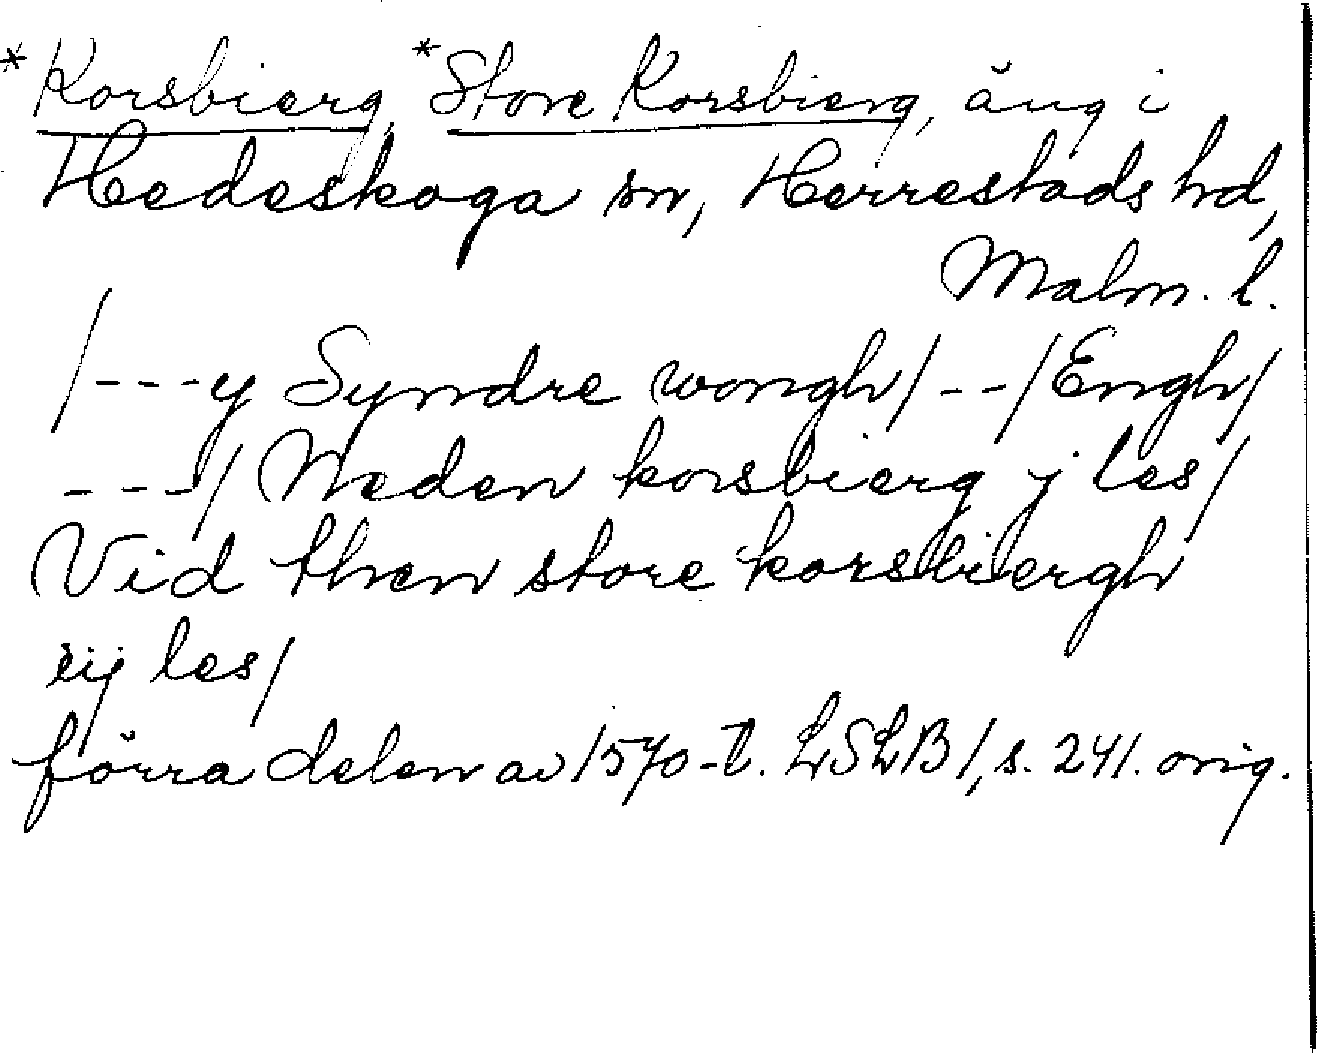 *Korsbierg, *Store Korsbierg, äng i
Hedeskoga sn, Herrestads hd,
Malm. l.
/---y Syndre wongh/--/Engh/
---/Neden korsbierg j les/
Vid then store korsbiergh
iij les/
förra delen av 1570-t. LSLB1, s. 241. orig.